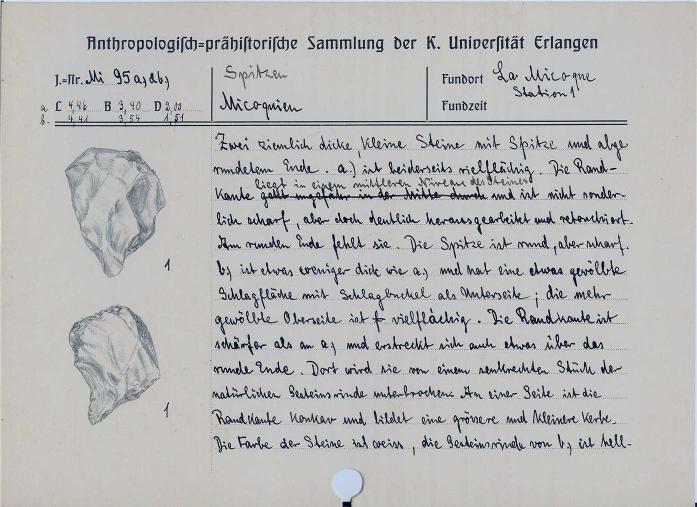 Anthropologisch=prähistorische Sammlung der K. Universität Erlangen
J.=Nr. Mi 95 a, & b,
a L 4,46 B 3,40 D 2,00
b. 4,41 3,54 1,51
Spitzen
Micoquien
Fundort La Micoque
Station 1
Fundzeit
Zwei ziemlich dicke, kleine Steine mit Spitze und abge
rundetem Ende. a.) ist beiderseits vielflächig. Die Rand-
liegt in einem mittleren Niveau des Steines
kante geht ungefähr in der Mitte durch und ist nicht sonder-
lich scharf, aber doch deutlich herausgearbeitet und retouchiert.
Am runden Ende fehlt sie. Die Spitze ist rund, aber scharf.
b, ist etwas weniger dick wie a, und hat eine etwas gewölbte
Schlagfläche mit Schlagbuckel als Unterseite; die mehr
gewölbte Oberseite ist vielflächig. Die Randkante ist
schärfer als an a, und erstreckt sich auch etwas über das
runde Ende. Dort wird sie von einem senkrechten Stück der
natürlichen Gesteinsrinde unterbrochen. An einer Seite ist die
Randkante konkav und bildet eine grössere und kleinere Kerbe.
Die Farbe der Steine ist weiss, die Gesteinsrinde von b, ist hell-
1
1